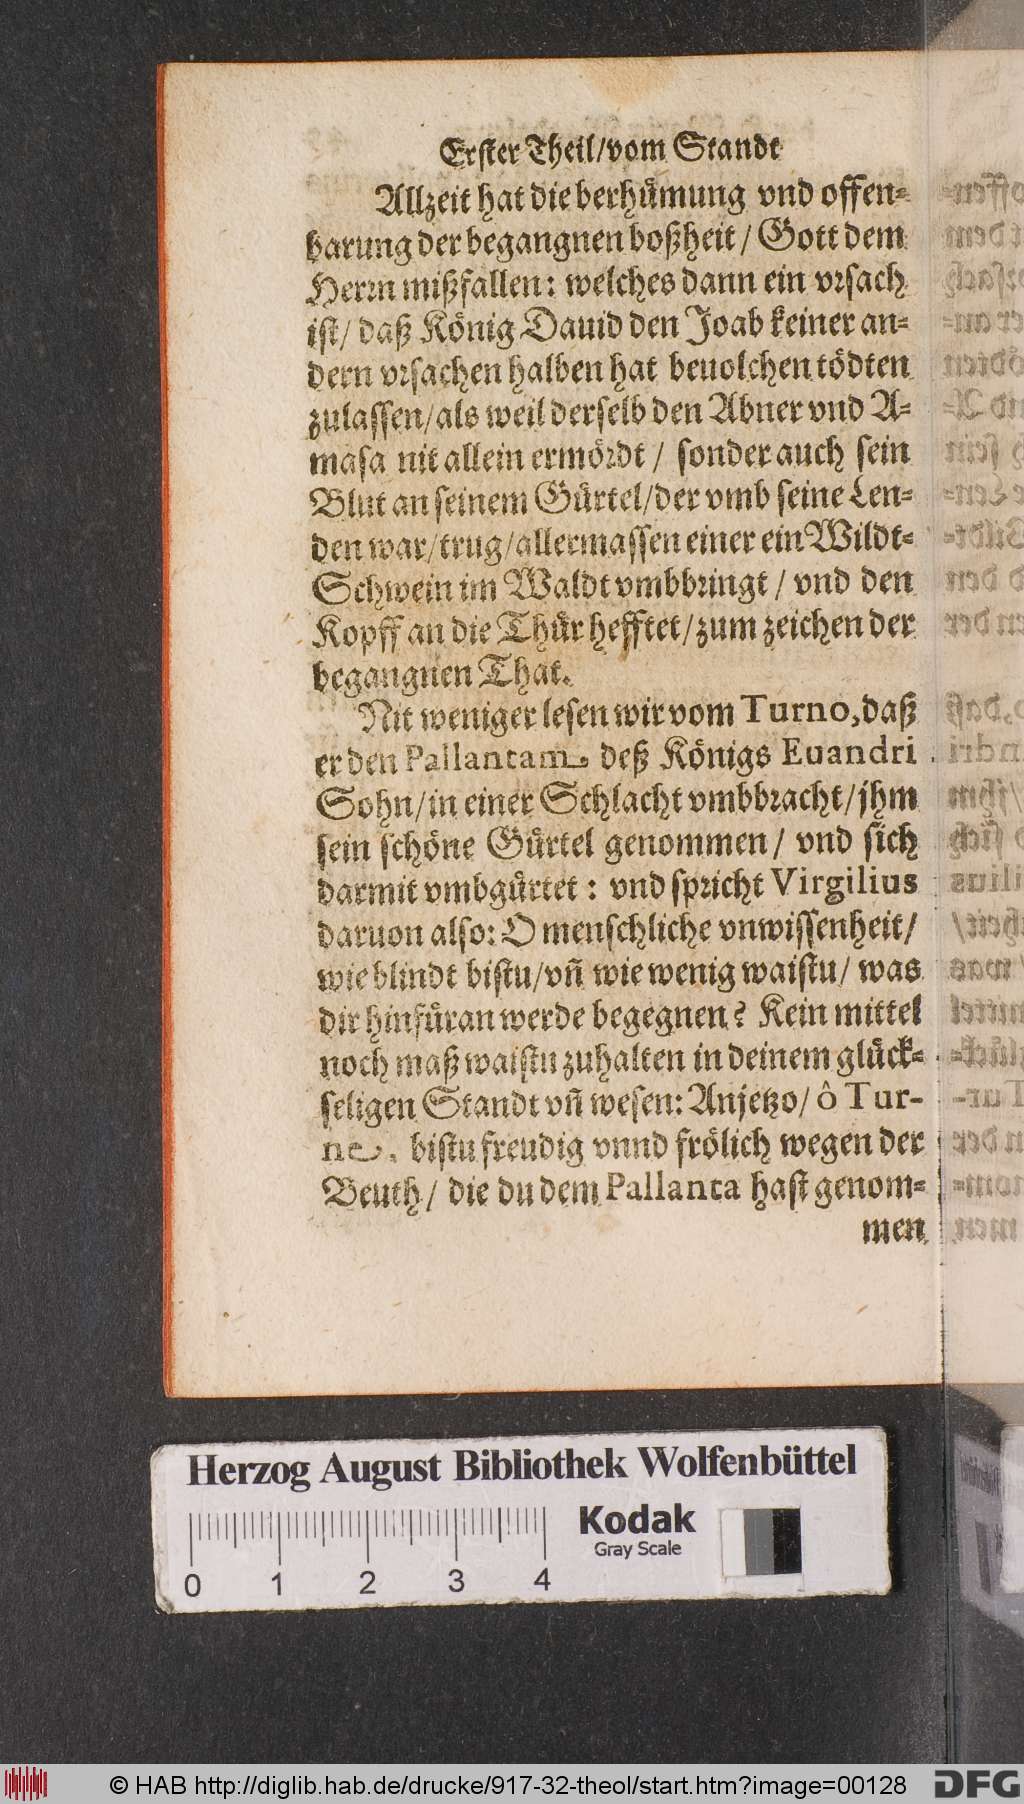 Erster Theil/vom Standt
Allzeit hat die berhümung vnd offen-
barung der begangnen boßheit / Gott dem
Herrn mißfallen: welches dann ein vrsach
ist/ daß König Dauid den Joab keiner an-
dern vrsachen halben hat beuolchen tödten
zulassen/als weil derselb den Abner vnd A-
masa nit allein ermördt / sonder auch sein
Blut an seinem Gürtel/der vmb seine Len-
den war/trug/allermassen einer ein Wildt-
Schwein im Waldt vmbbringt / vnd den
Kopff an die Thür hefftet/zum zeichen der
begangnen That.
Nit weniger lesen wir vom Turno, daß
er den Pallantam deß Königs Euandri
Sohn/in einer Schlacht vmbbracht/jhm
sein schöne Gürtel genommen / vnd sich
darmit vmbgürtet : vnd spricht Virgilius
daruon also: O menschliche vnwissenheit/
wie blindt bistu/vñ wie wenig waistu/ was
dir hinfüran werde begegnen? Kein mittel
noch maß waistu zuhalten in deinem glück-
seligen Standt vñ wesen: Anjetzo/ ô Tur-
ne, bistu freudig vnnd frölich wegen der
Beuth/ die du dem Pallanta hast genom-
men
Herzog August Bibliothek Wolfenbüttel
Kodak
Gray Scale
0 1 2 3 4
© HAB http://diglib.hab.de/drucke/917-32-theol/start.htm?image=00128
DFG